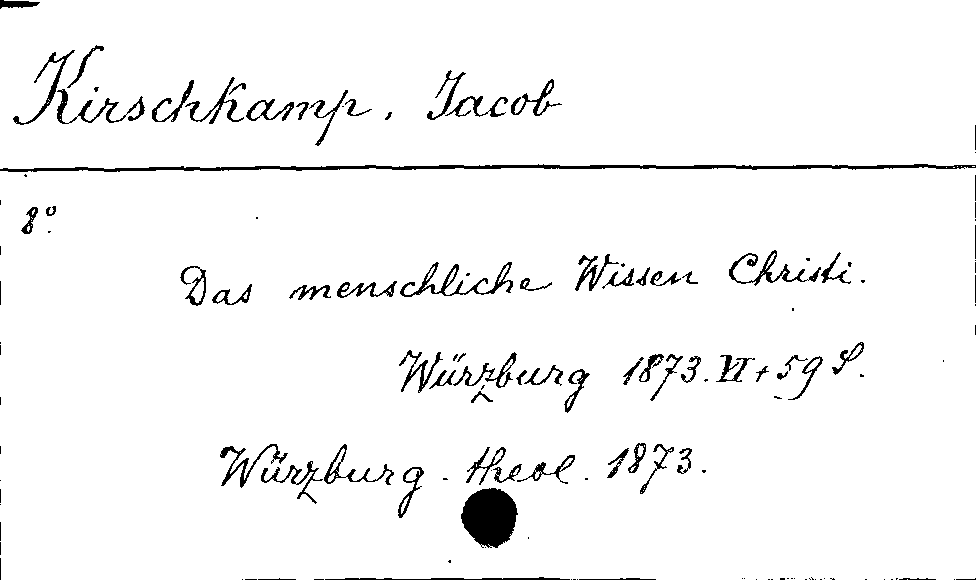 Kirschkamp, Jacob
8°.
Das menschliche Wissen Christi.
Würzburg 1873. VI + 59 S.
Würzburg. theol. 1873.